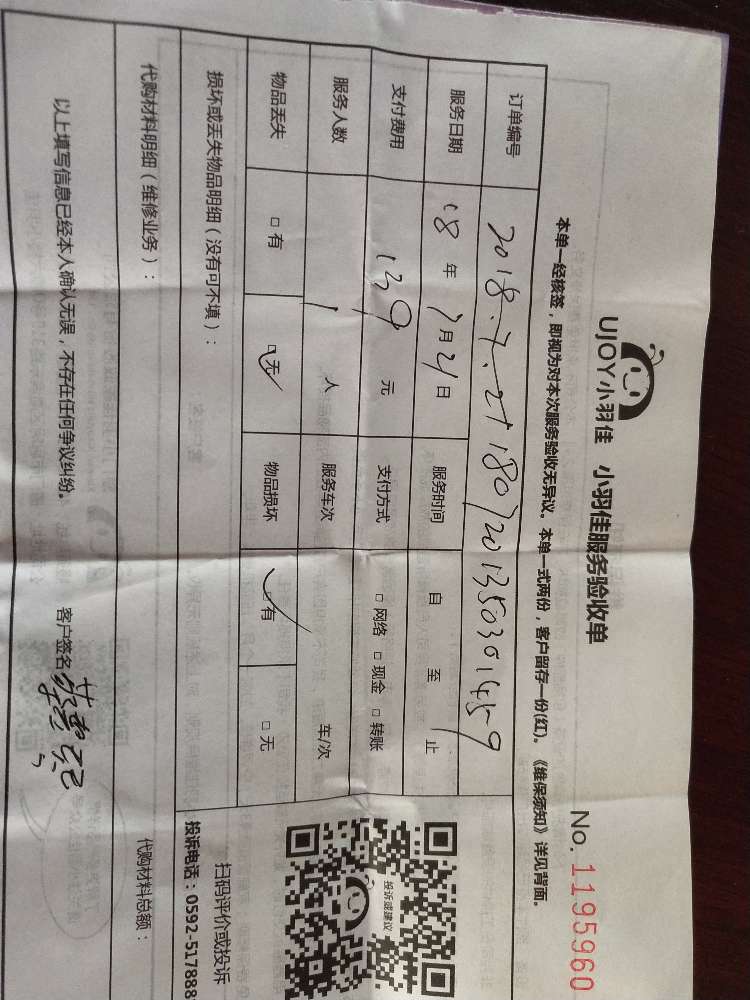 UJOY小羽佳 小羽佳服务验收单
No. 1195960
本单一经核签，即视为对本次服务验收无异议。本单一式两份，客户留存一份(红)。《维保须知》详见背面。
订单编号 2018.7.21 180720135030
服务日期 18年7月21日 服务时间 自 至 止
支付费用 139元 支付方式 □网络 □现金 □转账
服务人数 1人 服务车次 车/次
物品丢失 □有 □无 物品损坏 □有 □无
损坏或丢失物品明细（没有可不填）：
投诉或建议
扫码评价或投诉
投诉电话：0592-517888
代购材料明细（维修业务）： 代购材料总额：
以上填写信息已经本人确认无误，不存在任何争议纠纷。 客户签名